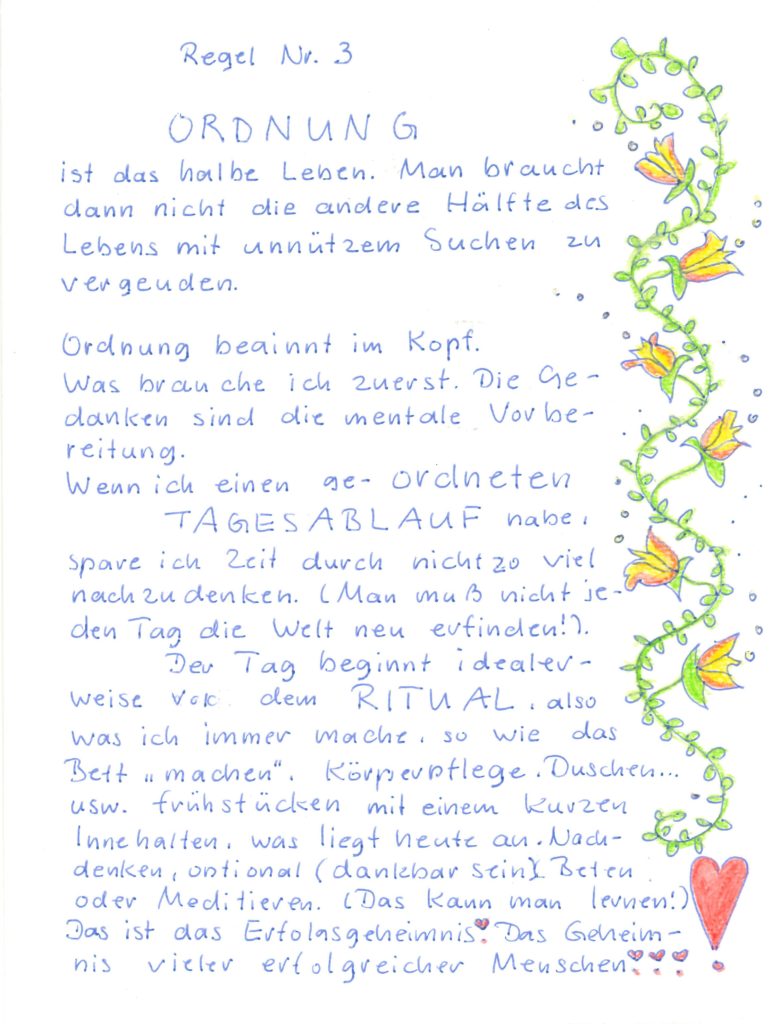 Regel Nr. 3
ORDNUNG
ist das halbe Leben. Man braucht
dann nicht die andere Hälfte des
Lebens mit unnützem Suchen zu
vergeuden.
Ordnung beginnt im Kopf.
Was brauche ich zuerst. Die Ge-
danken sind die mentale Vorbe-
reitung.
Wenn ich einen ge- ordneten
TAGESABLAUF habe,
spare ich Zeit durch nicht zo viel
nachzudenken. (Man muß nicht je-
den Tag die Welt neu erfinden!).
Der Tag beginnt idealer-
weise vor dem RITUAL, also
was ich immer mache, so wie das
Bett „machen". Körperpflege. Duschen...
usw. frühstücken mit einem kurzen
Innehalten, was liegt heute an. Nach-
denken, optional (dankbar sein). Beten
oder Meditieren. (Das kann man lernen!)
Das ist das Erfolgsgeheimnis! Das Geheim-
nis vieler erfolgreicher Menschen!!!